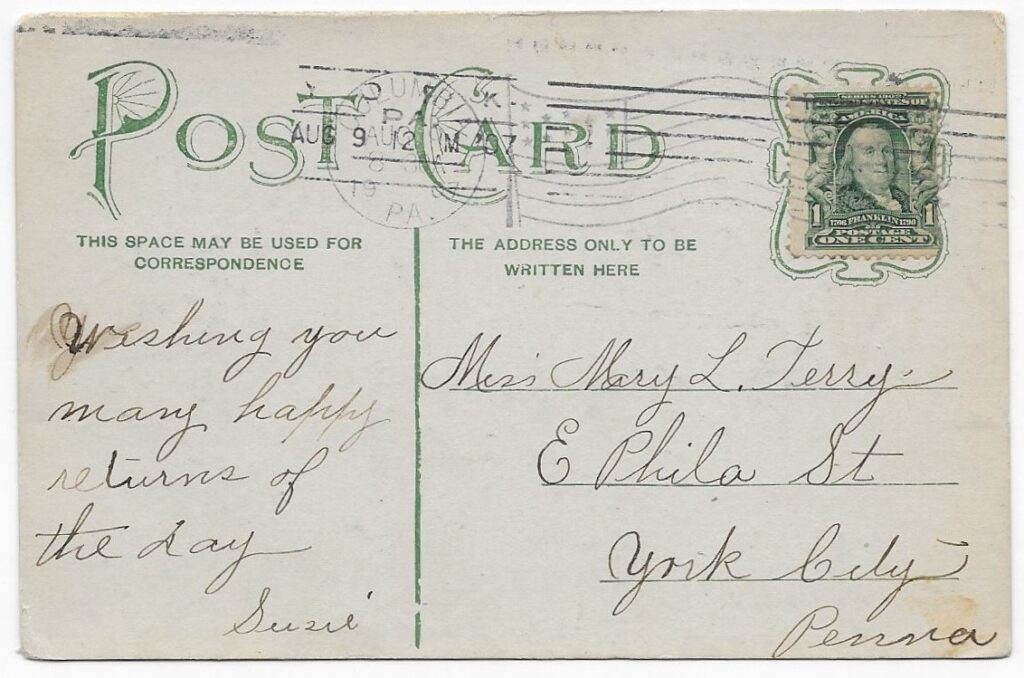 POST CARD
COLUMBIA
PA.
AUG 9 12 M '07
AUG
8
1907
PA.
SERIES 1902
UNITED STATES OF
AMERICA
1706 FRANKLIN 1790
1 1
POSTAGE
ONE CENT
THIS SPACE MAY BE USED FOR
CORRESPONDENCE
THE ADDRESS ONLY TO BE
WRITTEN HERE
Wishing you
many happy
returns of
the day
Susie
Miss Mary L. Terry
E Phila St
York City
Penna